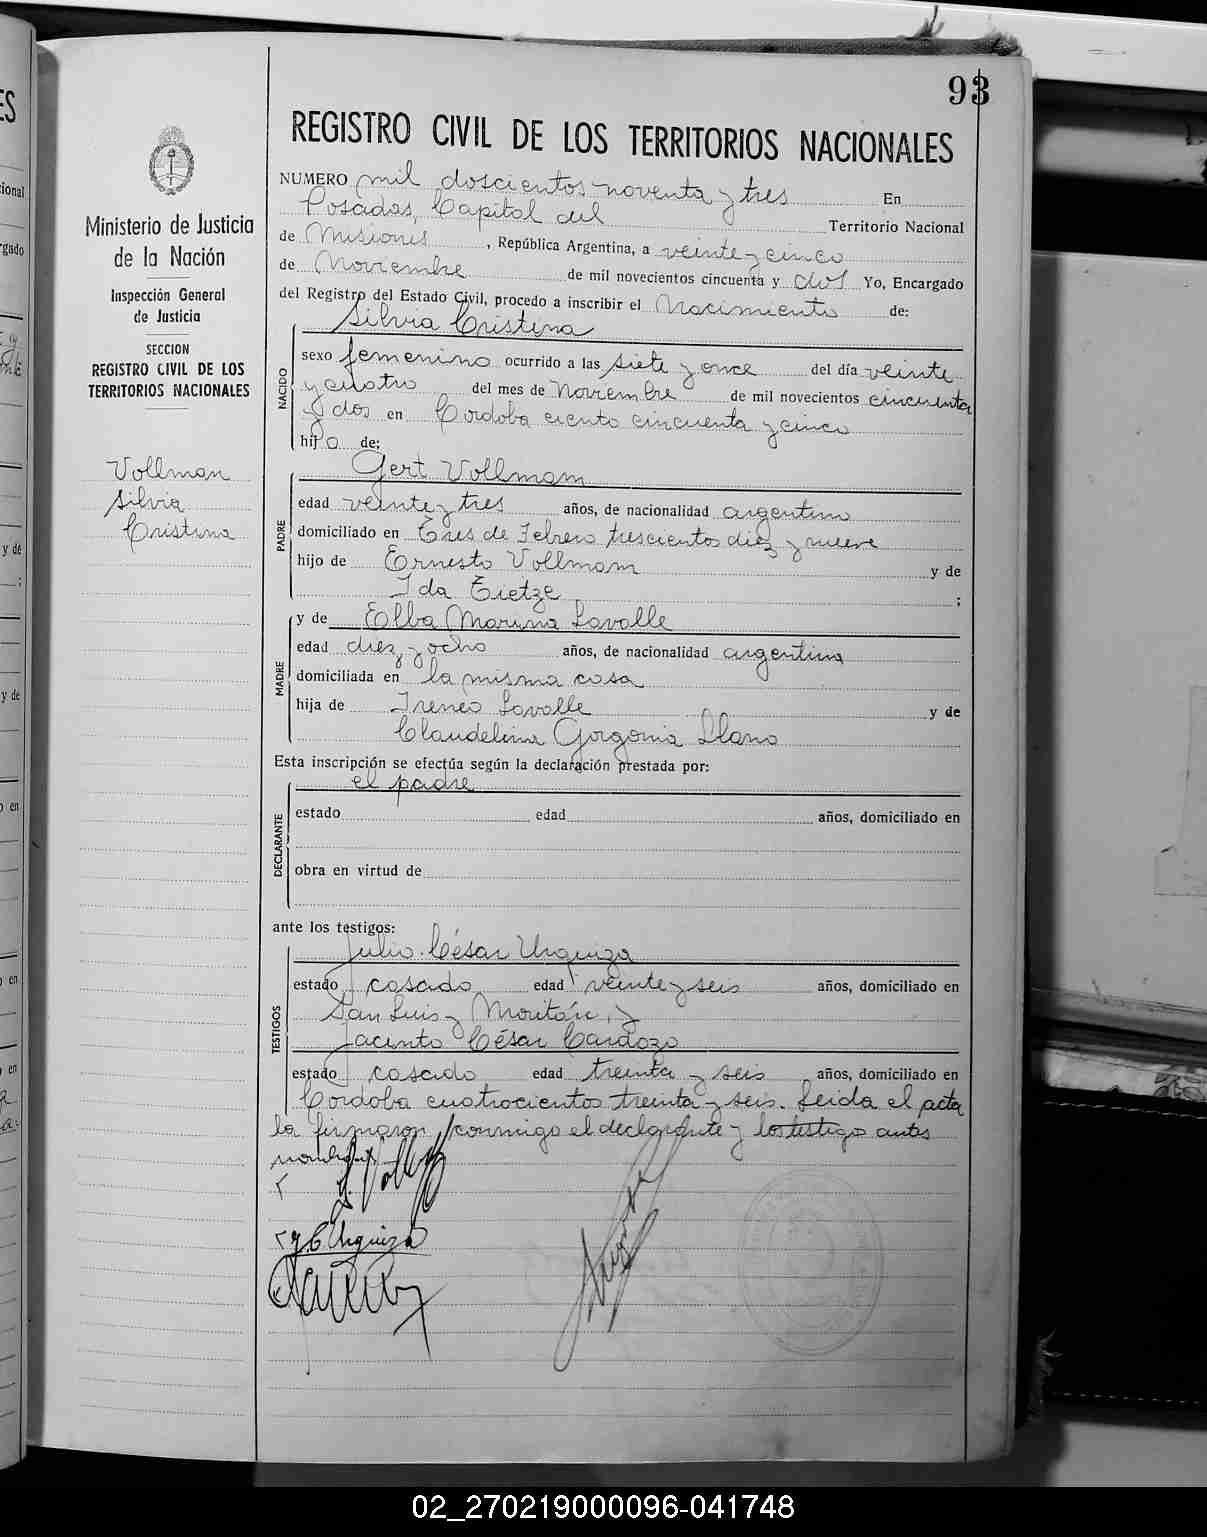 93
REGISTRO CIVIL DE LOS TERRITORIOS NACIONALES
Ministerio de Justicia
de la Nación
Inspección General
de Justicia
SECCION
REGISTRO CIVIL DE LOS
TERRITORIOS NACIONALES
Vollman
Silvia
Cristina
NUMERO mil doscientos noventa y tres En
Posadas, Capital del Territorio Nacional
de Misiones, República Argentina, a veinte y cinco
de Noviembre de mil novecientos cincuenta y dos Yo, Encargado
del Registro del Estado Civil, procedo a inscribir el Nacimiento de:
Silvia Cristina
NACIDO
sexo femenino ocurrido a las siete y once del día veinte
y cuatro del mes de Noviembre de mil novecientos cincuenta
y dos en Cordoba ciento cincuenta y cinco
hija de:
Gert Vollmam
PADRE
edad veinte y tres años, de nacionalidad argentino
domiciliado en Tres de Febrero trescientos diez y nueve
hijo de Ernesto Vollmam y de
Ida Tietze ;
y de Elba Marina Lavalle
MADRE
edad diez y ocho años, de nacionalidad argentina
domiciliada en la misma casa
hija de Ireneo Lavalle y de
Claudelina Gorgonia Llano
Esta inscripción se efectúa según la declaración prestada por:
el padre
DECLARANTE
estado edad años, domiciliado en
obra en virtud de
ante los testigos:
Julio César Urquiza
TESTIGOS
estado casado edad veinte y seis años, domiciliado en
San Luis y Moritán, y
Jacinto César Cardozo
estado casado edad treinta y seis años, domiciliado en
Cordoba cuatrocientos treinta y seis. Leida el acta
la firmaron conmigo el declarante y los testigo antes
J C Urquiza
02_270219000096-041748